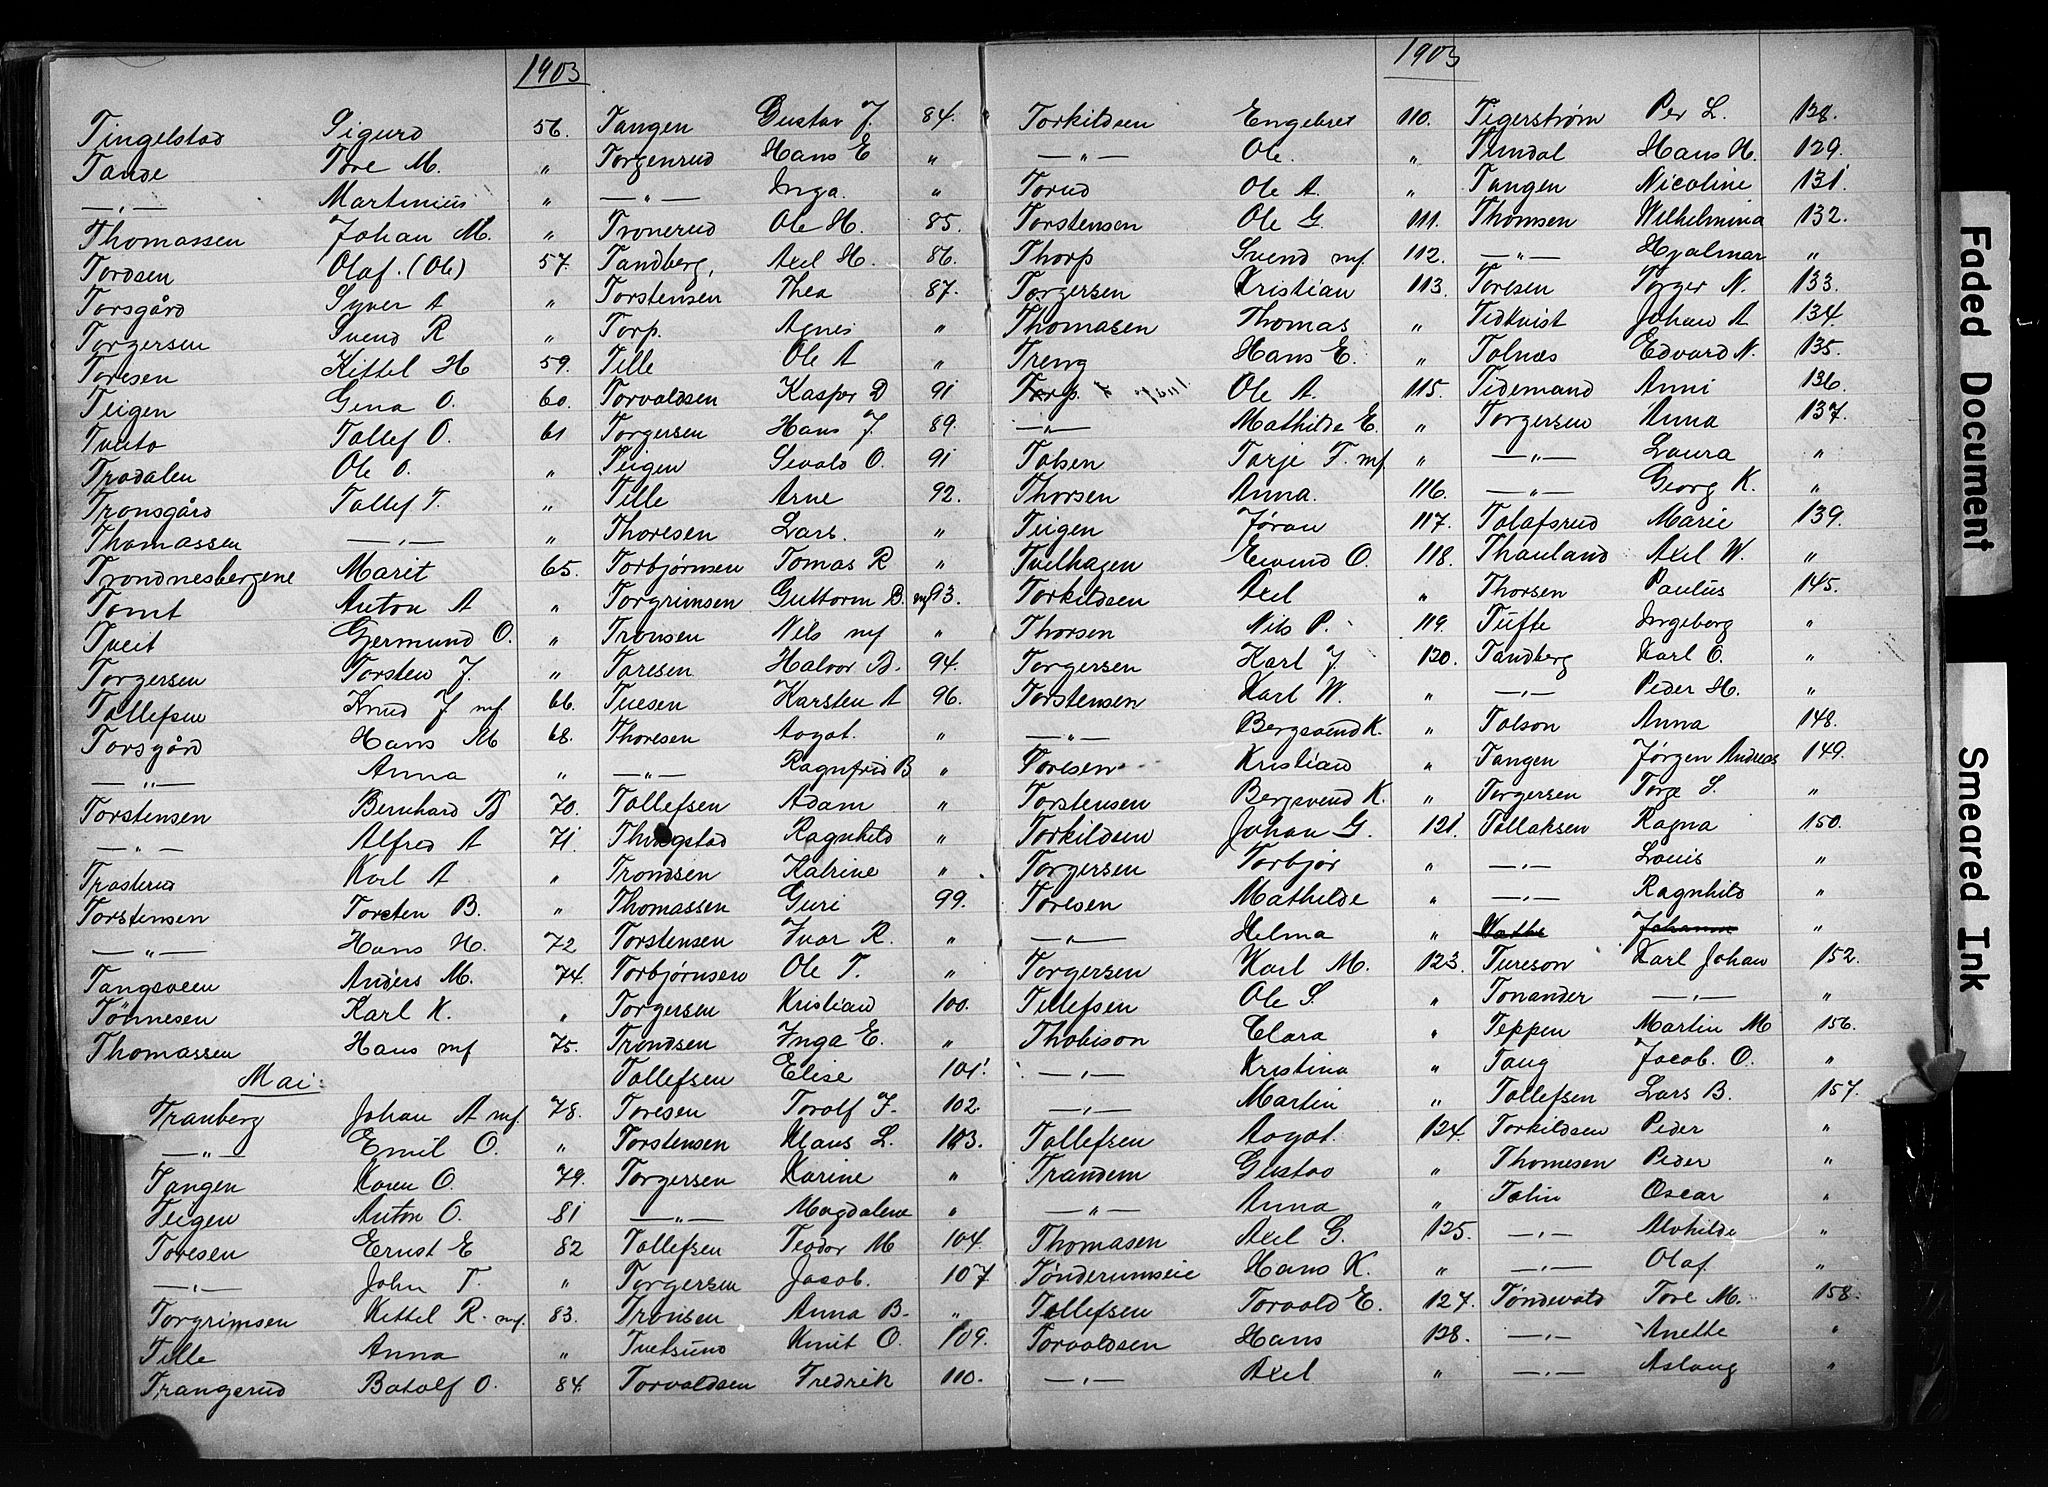 1903
Tingelstad Sigurd 56.
Tande Tore M. "
—"— Martinius "
Thomassen Johan M. "
Tordsen Olaf. (Ole) 57.
Torsgård Syver A "
Torgersen Svend R "
Toresen Kittel H 59.
Teigen Gena O. 60.
Tveito Tollef O. 61
Trodalen Ole O. "
Tronsgård Tollef T. "
Thomassen —"— "
Trondnesbergene Marit 65.
Tomt Anton A "
Tveit Germund O. "
Torgersen Torsten J. "
Tollefsen Knud J. mf. 66.
Torsgård Hans M 68.
—"— Anna "
Torstensen Bernhard B 70.
—"— Alfred A 71.
Trosterud Karl A "
Torstensen Torsten B. "
—"— Hans H. 72
Tangsveen Anders M. 74.
Tønnesen Karl K. "
Thomassen Hans mf 75.
Mai:
Tranberg Johan A mf. 78.
—"— Emil O. "
Tangen Karen O. 79.
Teigen Anton O. 81
Toresen Ernst E 82
—"— John T. "
Torgrimsen Kittel R. mf. 83.
Tille Anna "
Trangerud Botolf O. 84.
Tangen Gustav J. 84.
Torgenrud Hans E "
—"— Inga. "
Tronerud Ole H. 85.
Tandberg, Axel H. 86.
Torstensen Thea 87.
Torp. Agnes "
Tille Ole A "
Torvaldsen Kasper D 91
Torgersen Hans J. 89.
Teigen Sevald O. 91
Tille Arne 92.
Thoresen Lars. "
Torbjørnsen Tomas R "
Torgrimsen Guttorm B. mf 93.
Tronsen Nils mf "
Toresen Halvor B. 94.
Tuesen Karsten A 96.
Thoresen Aagot. "
—"— Ragnfrid B "
Tollefsen Adam "
Thingstad Ragnhild "
Trondsen Katrine "
Thomassen Guri 99.
Torstensen Ivar R. "
Torbjørnsen Ole T. "
Torgersen Kristian 100.
Trondsen Inga E. "
Tollefsen Elise 101.
Toresen Torolf J. 102.
Torstensen Klaus L. 103.
Torgersen Karine "
—"— Magdalene "
Tollefsen Teodor M 104.
Torgersen Jacob. 107
Tronsen Anna B. "
Tvetsund Knut O. 109.
Torvaldsen Fredrik 110.
1903
Torkildsen Engebret 110.
—"— Ole. "
Torud Ole A. "
Torstensen Ole G. 111.
Thorp Svend mf. 112.
Torgersen Kristian 113.
Thomasen Thomas "
Treng Hans E. "
Torp. Ole A. 115.
—"— Mathilde E. "
Tolsen Tarje T. mf "
Thorsen Anna. 116.
Teigen Jøran 117.
Tvelhagen Eivind O. 118.
Torkildsen Axel "
Thorsen Nils P. 119.
Torgersen Karl J. 120.
Torstensen Karl W. "
—"— Bergsvend K. "
Toresen Kristian "
Torstensen Bergsvend K. "
Torkildsen Johan G. 121.
Torgersen Torbjør "
Toresen Mathilde "
—"— Helma "
Torgersen Karl M. 123.
Tellefsen Ole S. "
Thobison Clara "
—"— Kristina "
—"— Martin "
Tollefsen Aagot. 124.
Trandem Gustav "
—"— Anna "
Thomasen Axel G. 125.
Tønderumseie Hans K. "
Tollefsen Torvald E. 127.
Torvaldsen Hans 128.
—"— Axel "
Tigerstrøm Per L. 128.
Tundal Hans H. 129.
Tangen Nicoline 131.
Thomsen Wilhelmina 132.
—"— Hjalmar "
Toresen Torger N. 133.
Tidkvist Johan A 134.
Tolnæs Edvard N. 135.
Tidemand Anni 136.
Torgersen Anna 137.
—"— Laura "
—"— Georg K. "
Tolafsrud Marie 139.
Thauland Axel W. "
Thorsen Paulus 145.
Tufte Ingeborg "
Tandberg Karl O. "
—"— Peder H. "
Tolson Anna 148.
Tangen Jørgen Andreas 149.
Torgersen Torge S. "
Tollaksen Ragna 150.
—"— Louis "
—"— Ragnhild "
Johanne "
Tureson Karl Johan 152.
Tonander —"— "
Teppen Martin M 156.
Tang Jacob. O. "
Tollefsen Lars B. 157.
Torkildsen Peder "
Thomesen Peder "
Tolin Oscar "
—"— Alvhilde "
—"— Olaf "
Tøndevold Tore M. 158.
—"— Anette "
—"— Aslaug "
Faded Document
Smeared Ink